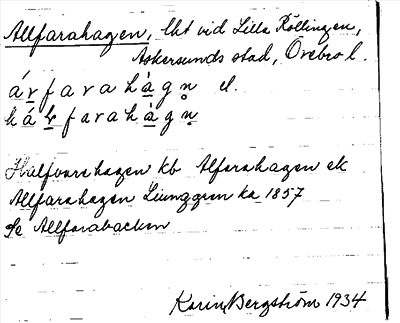 Allfarahagen, lht vid Lilla Köllingen,
Askersunds stad, Örebro l.
árfarahàgn̥ el.
hálfarahàgn̥
Halfvarahagen kb Alfarahagen ek
Allfarahagen Ljunggren ka 1857
Se Allfarabacken
Karin Bergström 1934